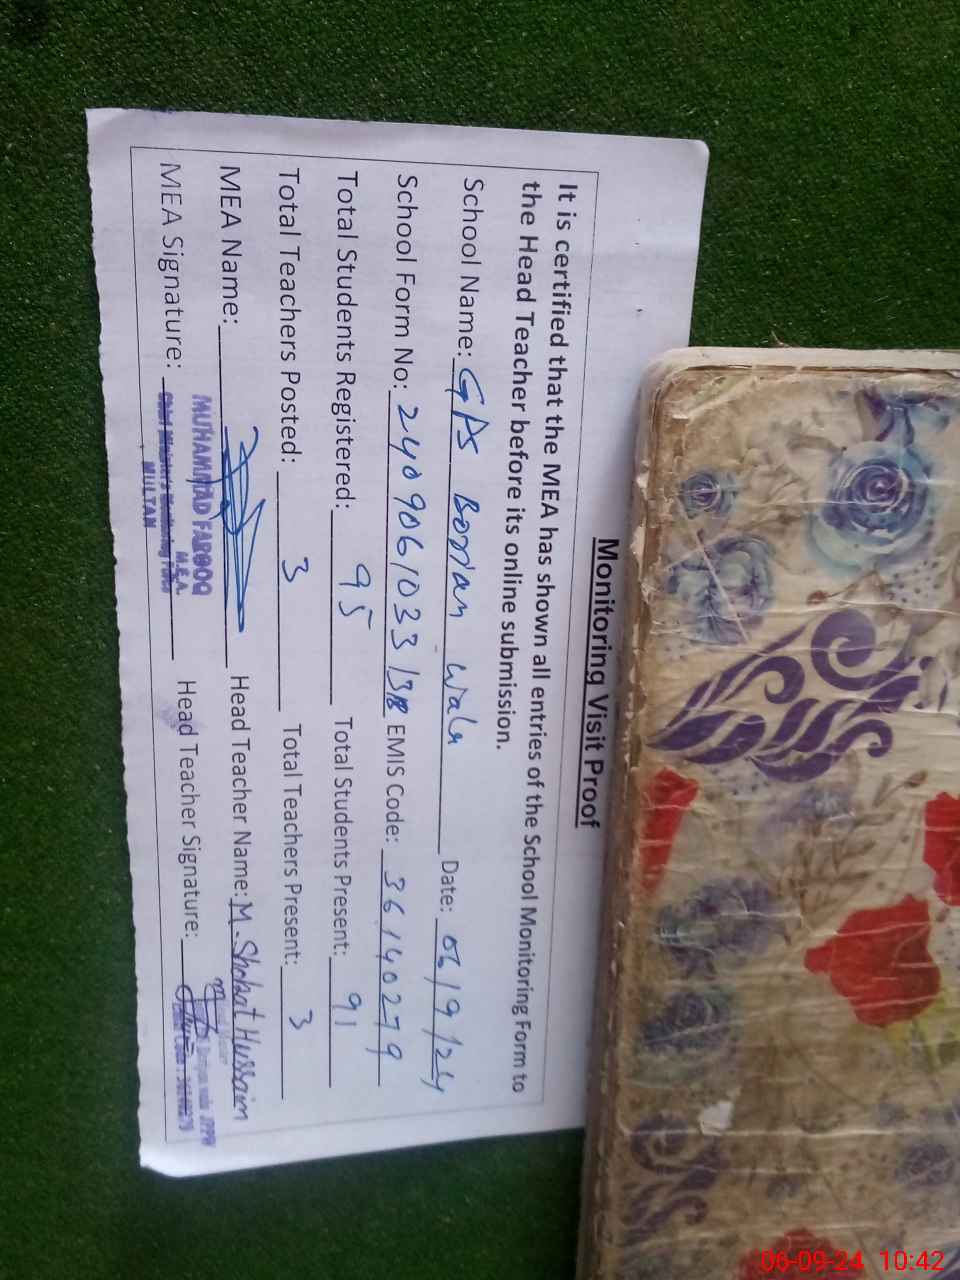 Monitoring Visit Proof
It is certified that the MEA has shown all entries of the School Monitoring Form to
the Head Teacher before its online submission.
School Name: GPS Borian wala Date: 06/9/24
School Form No: 2409061033 EMIS Code: 36140279
Total Students Registered: 95 Total Students Present: 91
Total Teachers Posted: 3 Total Teachers Present: 3
MEA Name: Head Teacher Name: M. Shokat Hussain
MUHAMMAD FAROOQ
M.E.A.
MEA Signature: Head Teacher Signature:
Chief Minister's Monitoring Force
MULTAN
06-09-24 10:42